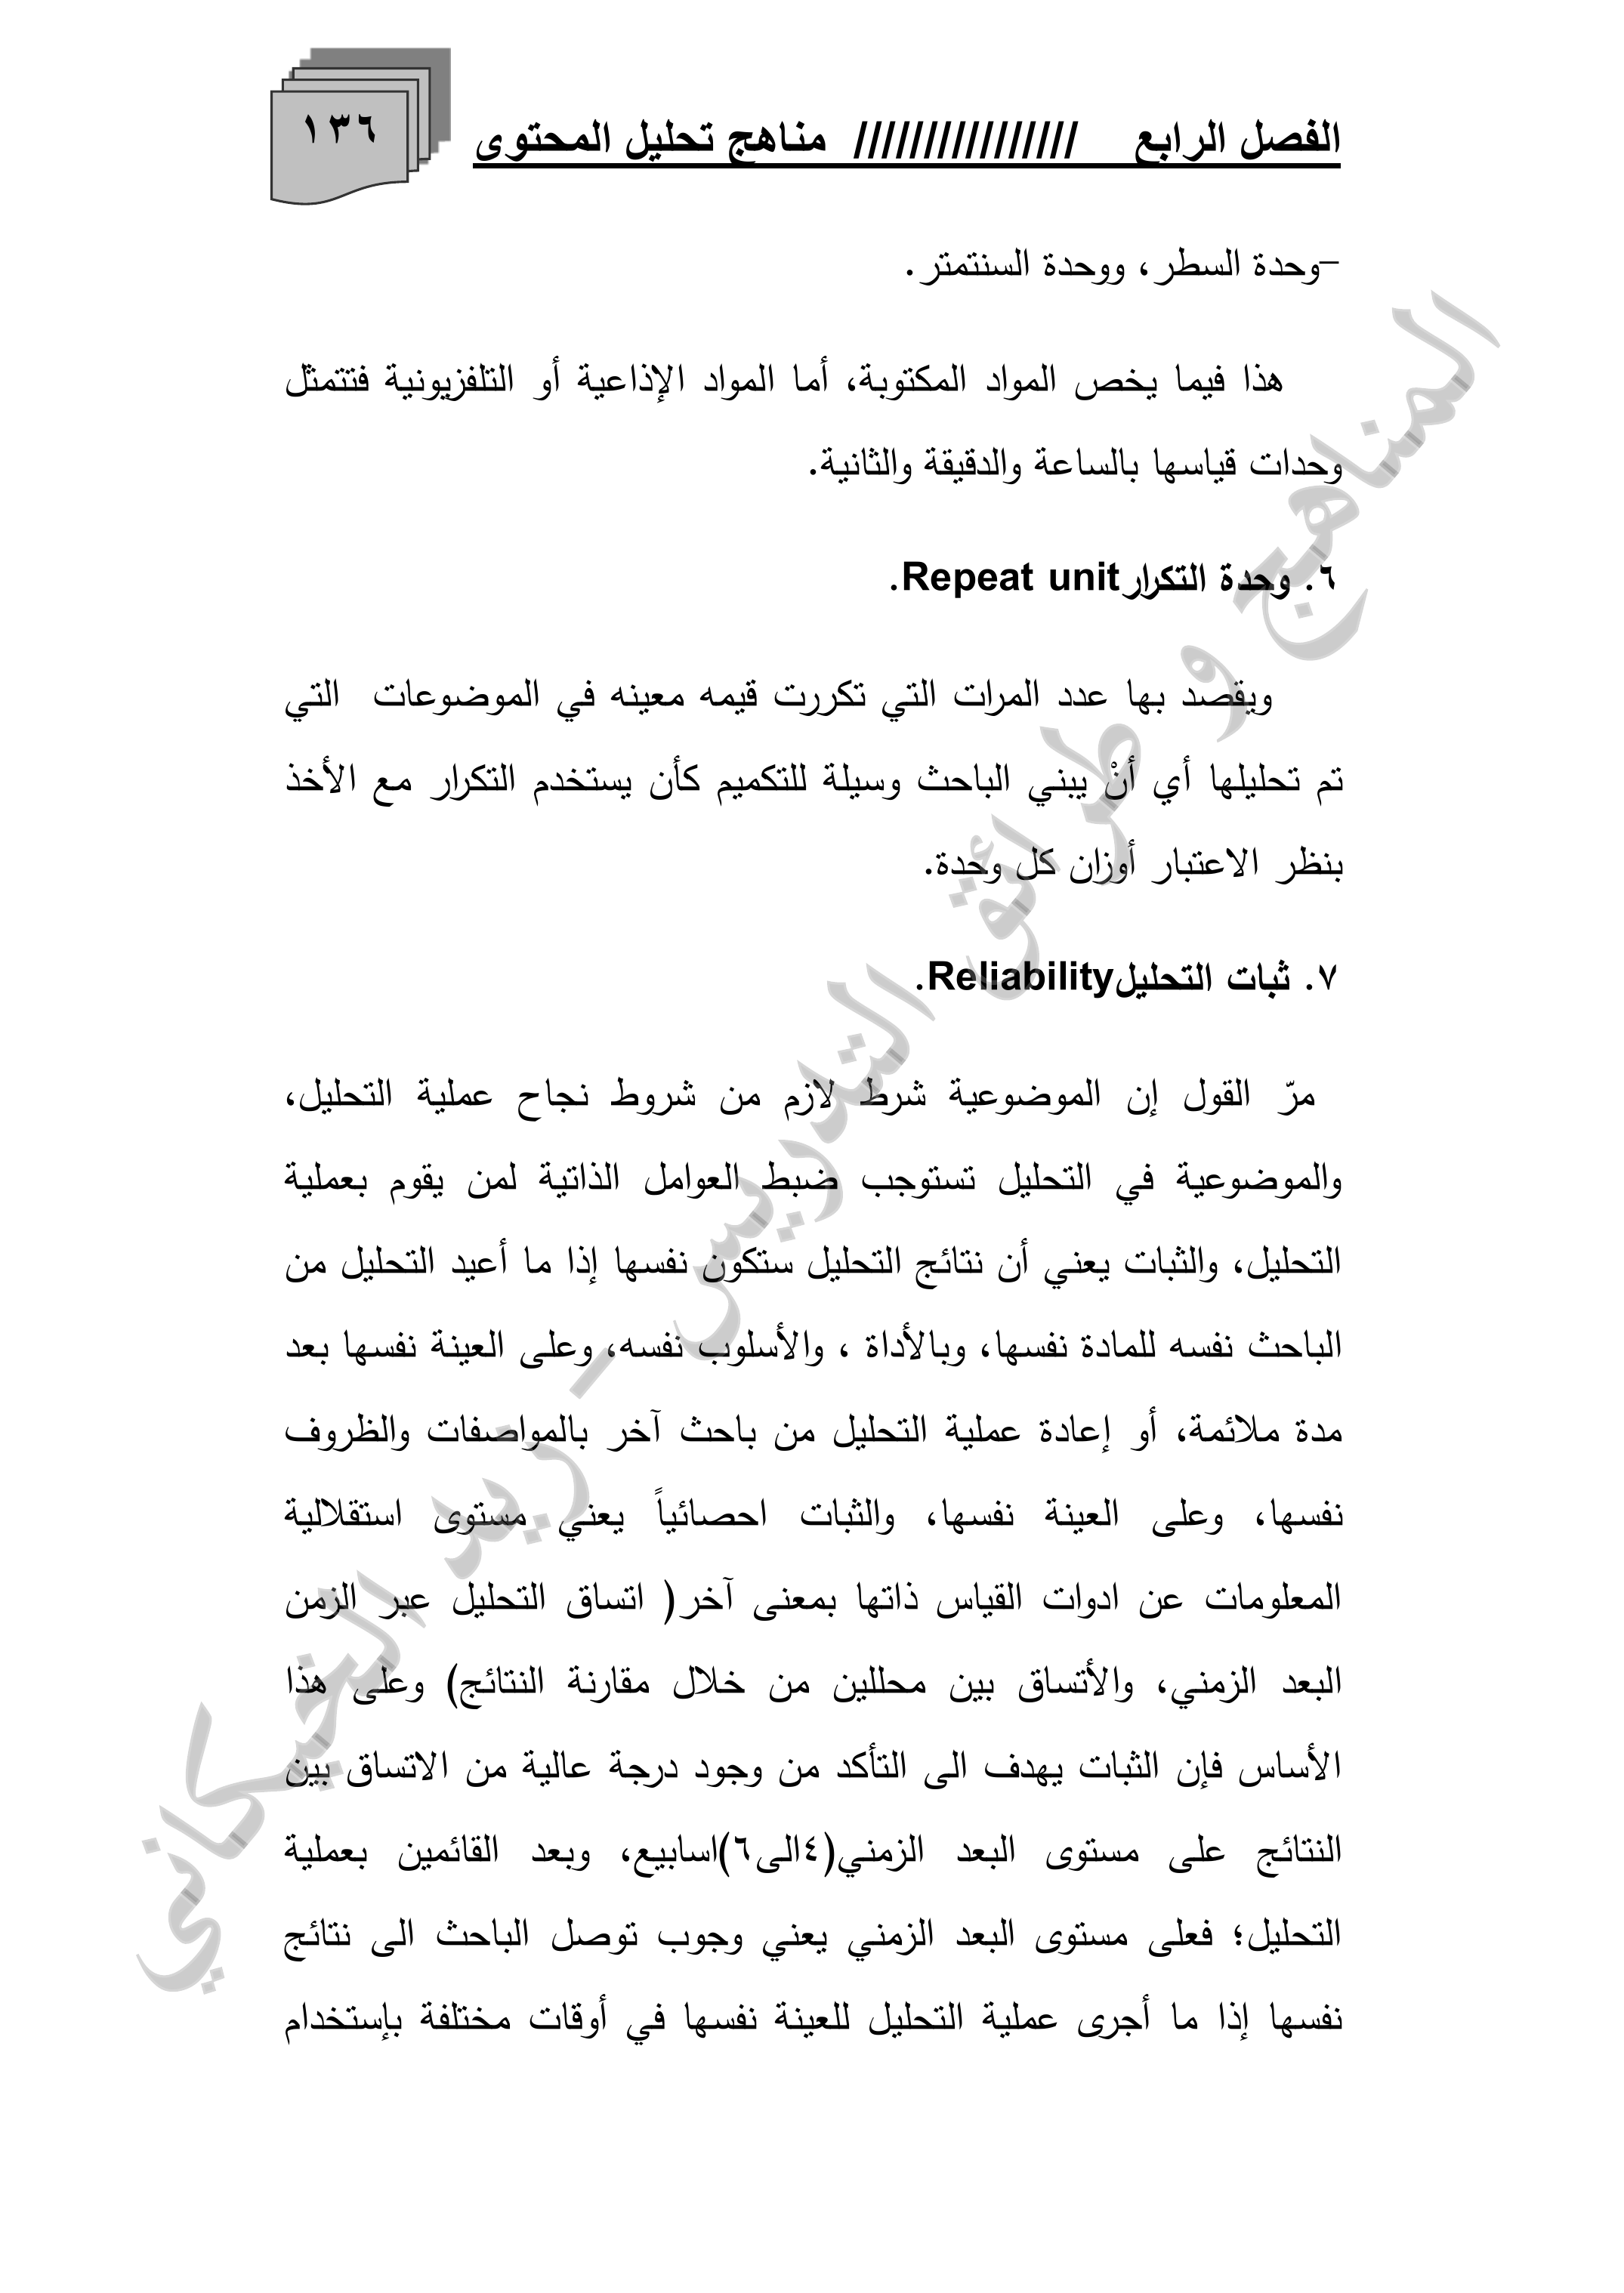 الفصل الرابع //////////////// مناهج تحليل المحتوى
١٣٦
–وحدة السطر، ووحدة السنتمتر.
هذا فيما يخص المواد المكتوبة، أما المواد الإذاعية أو التلفزيونية فتتمثل
وحدات قياسها بالساعة والدقيقة والثانية.
٦. وحدة التكرارRepeat unit.
ويقصد بها عدد المرات التي تكررت قيمه معينه في الموضوعات التي
تم تحليلها أي أنْ يبني الباحث وسيلة للتكميم كأن يستخدم التكرار مع الأخذ
بنظر الاعتبار أوزان كل وحدة.
٧. ثبات التحليلReliability.
مرّ القول إن الموضوعية شرط لازم من شروط نجاح عملية التحليل،
والموضوعية في التحليل تستوجب ضبط العوامل الذاتية لمن يقوم بعملية
التحليل، والثبات يعني أن نتائج التحليل ستكون نفسها إذا ما أعيد التحليل من
الباحث نفسه للمادة نفسها، وبالأداة ، والأسلوب نفسه، وعلى العينة نفسها بعد
مدة ملائمة، أو إعادة عملية التحليل من باحث آخر بالمواصفات والظروف
نفسها، وعلى العينة نفسها، والثبات احصائياً يعني مستوى استقلالية
المعلومات عن ادوات القياس ذاتها بمعنى آخر( اتساق التحليل عبر الزمن
البعد الزمني، والأتساق بين محللين من خلال مقارنة النتائج) وعلى هذا
الأساس فإن الثبات يهدف الى التأكد من وجود درجة عالية من الاتساق بين
النتائج على مستوى البعد الزمني(٤الى٦)اسابيع، وبعد القائمين بعملية
التحليل؛ فعلى مستوى البعد الزمني يعني وجوب توصل الباحث الى نتائج
نفسها إذا ما أجرى عملية التحليل للعينة نفسها في أوقات مختلفة بإستخدام
المناهج و طرائق التدريس – زيد الخيكاني